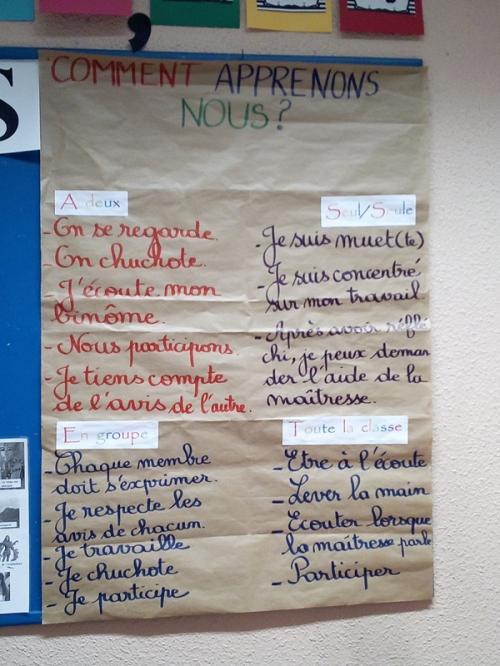 COMMENT APPRENONS
NOUS?
A deux
- On se regarde.
On chuchote.
- J'écoute mon
binôme.
- Nous participons.
- Je tiens compte
de l'avis de l'autre.
Seul/Seule
- Je suis muet(te)
- Je suis concentré
sur mon travail.
- Après avoir réflé
chi, je peux deman
der l'aide de la
maîtresse.
En groupe
- Chaque membre
doit s'exprimer.
- Je respecte les
avis de chacun.
- Je travaille
- Je chuchote
- Je participe
Toute la classe
- Etre à l'écoute
- Lever la main
- Ecouter lorsque
la maîtresse parle
- Participer